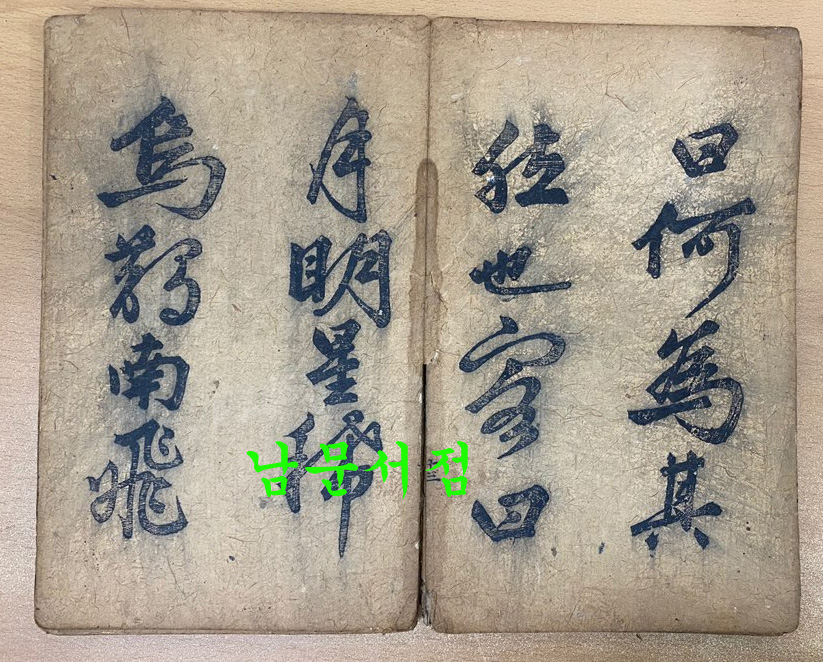 曰何為其
然也客曰
月明星稀
烏鵲南飛
남문서점